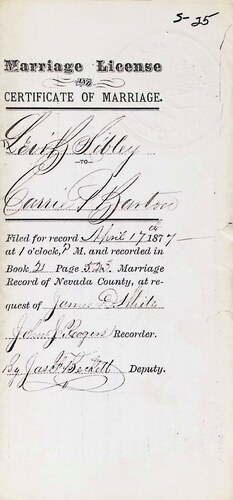 S-25
Marriage License
AND
CERTIFICATE OF MARRIAGE.
Levi B Sibley
TO
Carrie P Barton
Filed for record April 17th 1877
at 1 o'clock, P M. and recorded in
Book 2 Page 525 Marriage
Record of Nevada County, at re-
quest of James D White
John J Rogers Recorder.
By Jas F Beckett Deputy.